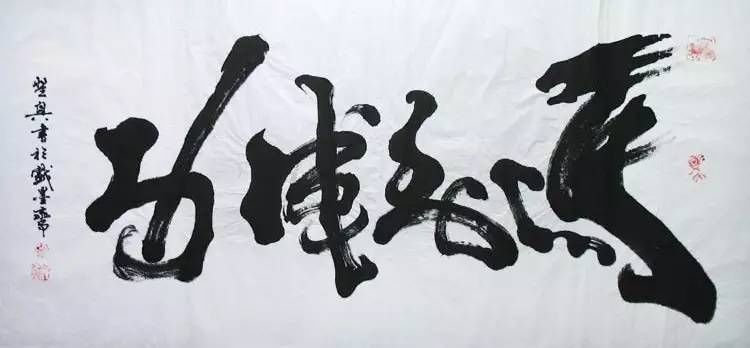 馬到成功
興書於戲墨齋